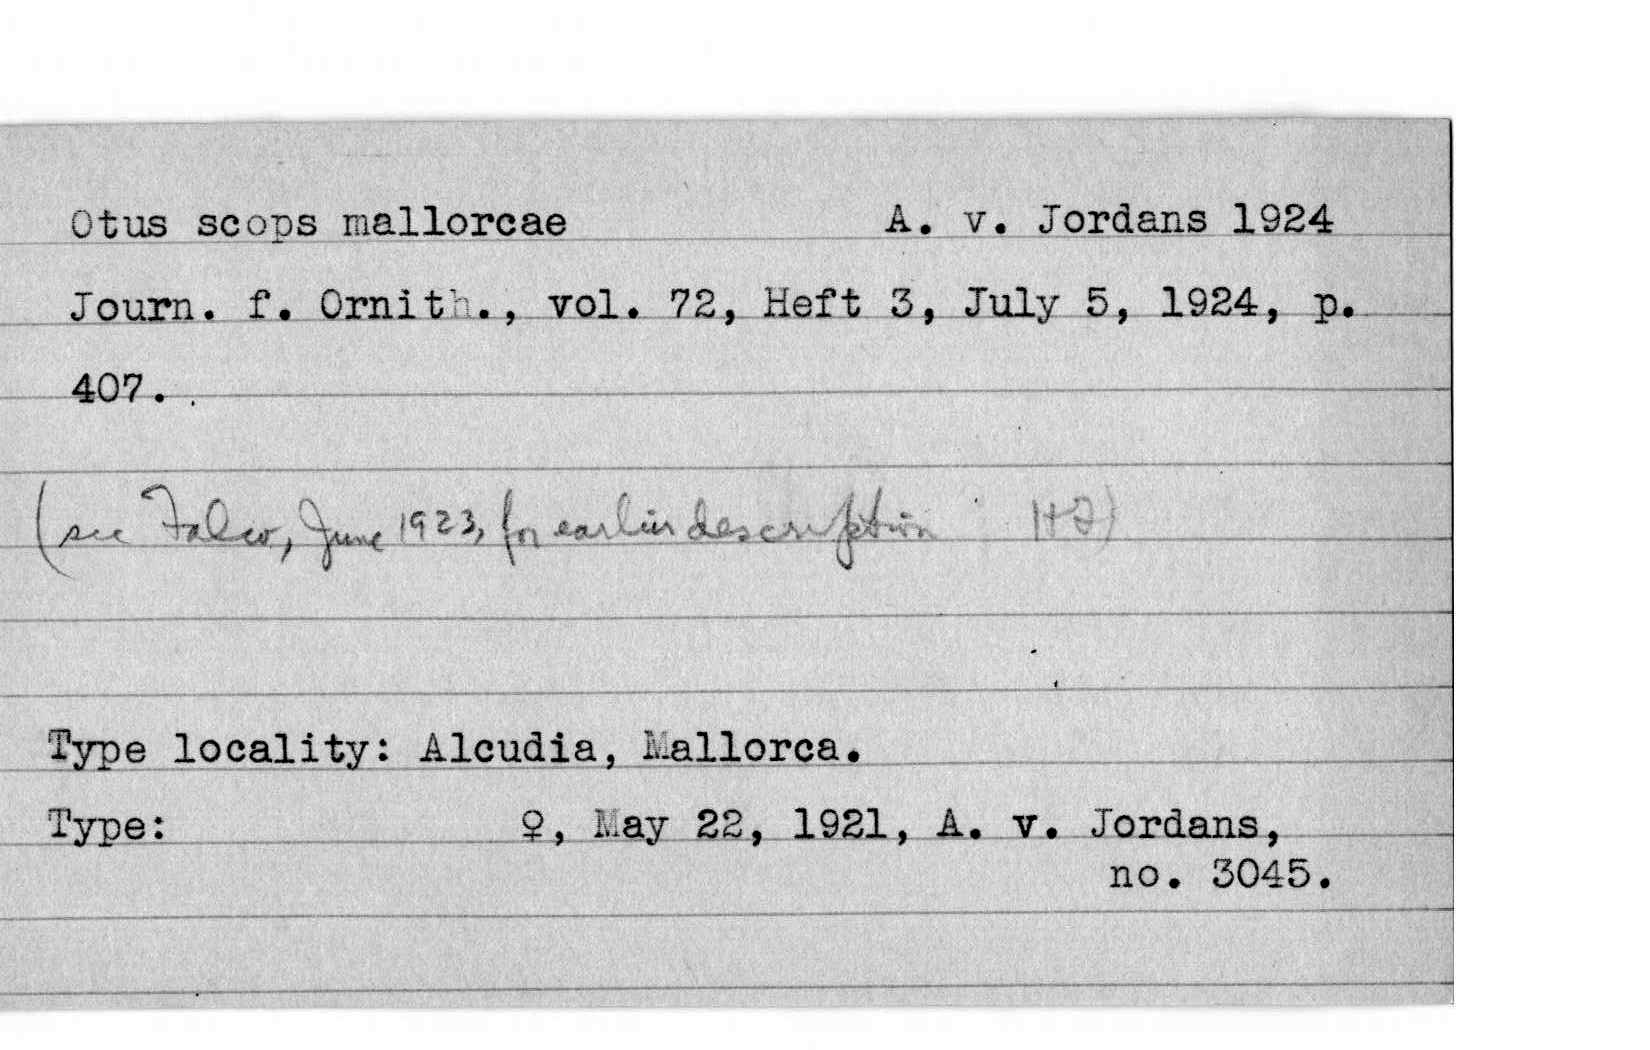 Otus scops mallorcae A. v. Jordans 1924
Journ. f. Ornith., vol. 72, Heft 3, July 5, 1924, p.
407.
(see Falco, June 1923, for earlier description )
Type locality: Alcudia, Mallorca.
Type: ♀, May 22, 1921, A. v. Jordans,
no. 3045.